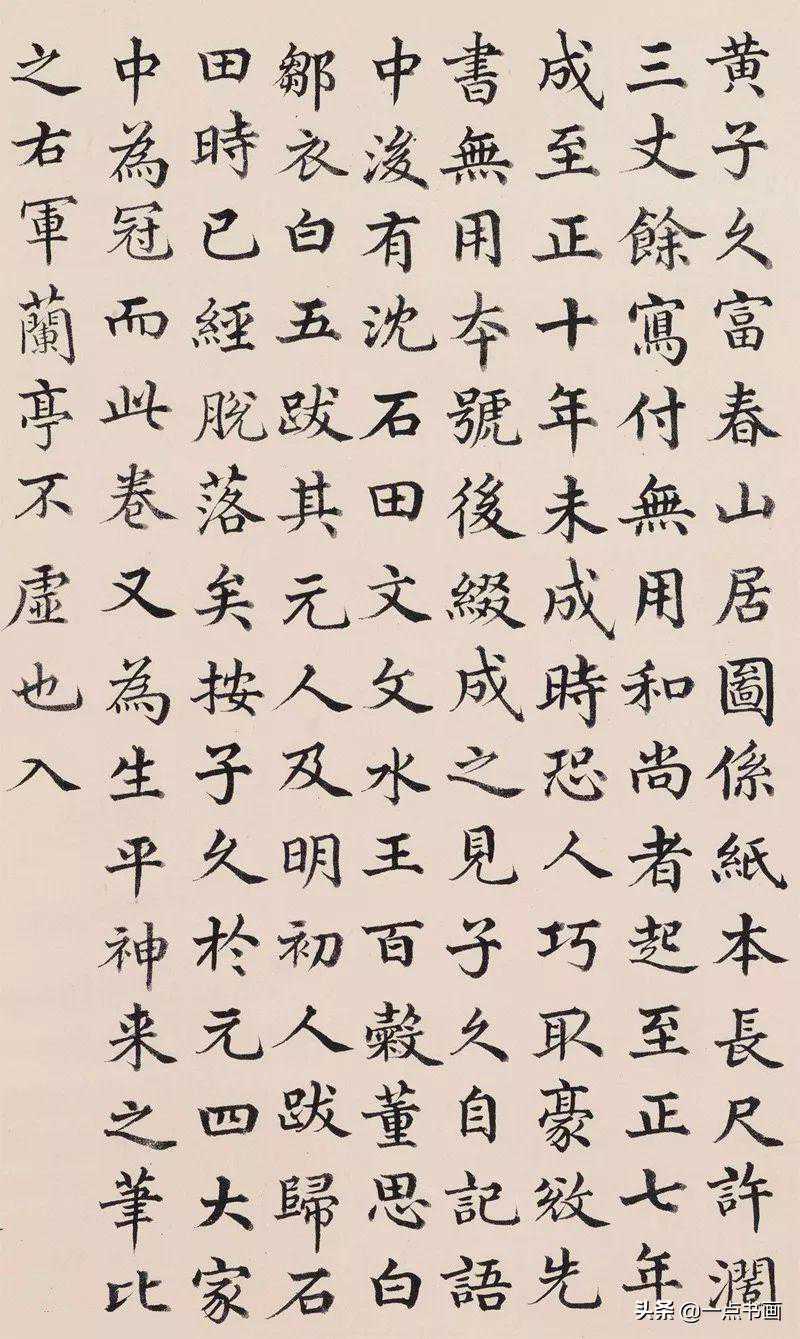 黄子久富春山居圖係紙本長尺許濶
三丈餘寫付無用和尚者起至正七年
成至正十年未成時恐人巧取豪敚先
書無用本號後綴成之見子久自記語
中後有沈石田文文水王百穀董思白
鄒衣白五跋其元人及明初人跋歸石
田時已經脱落矣按子久於元四大家
中為冠而此卷又為生平神来之筆比
之右軍蘭亭不虛也入
头条 @一点书画